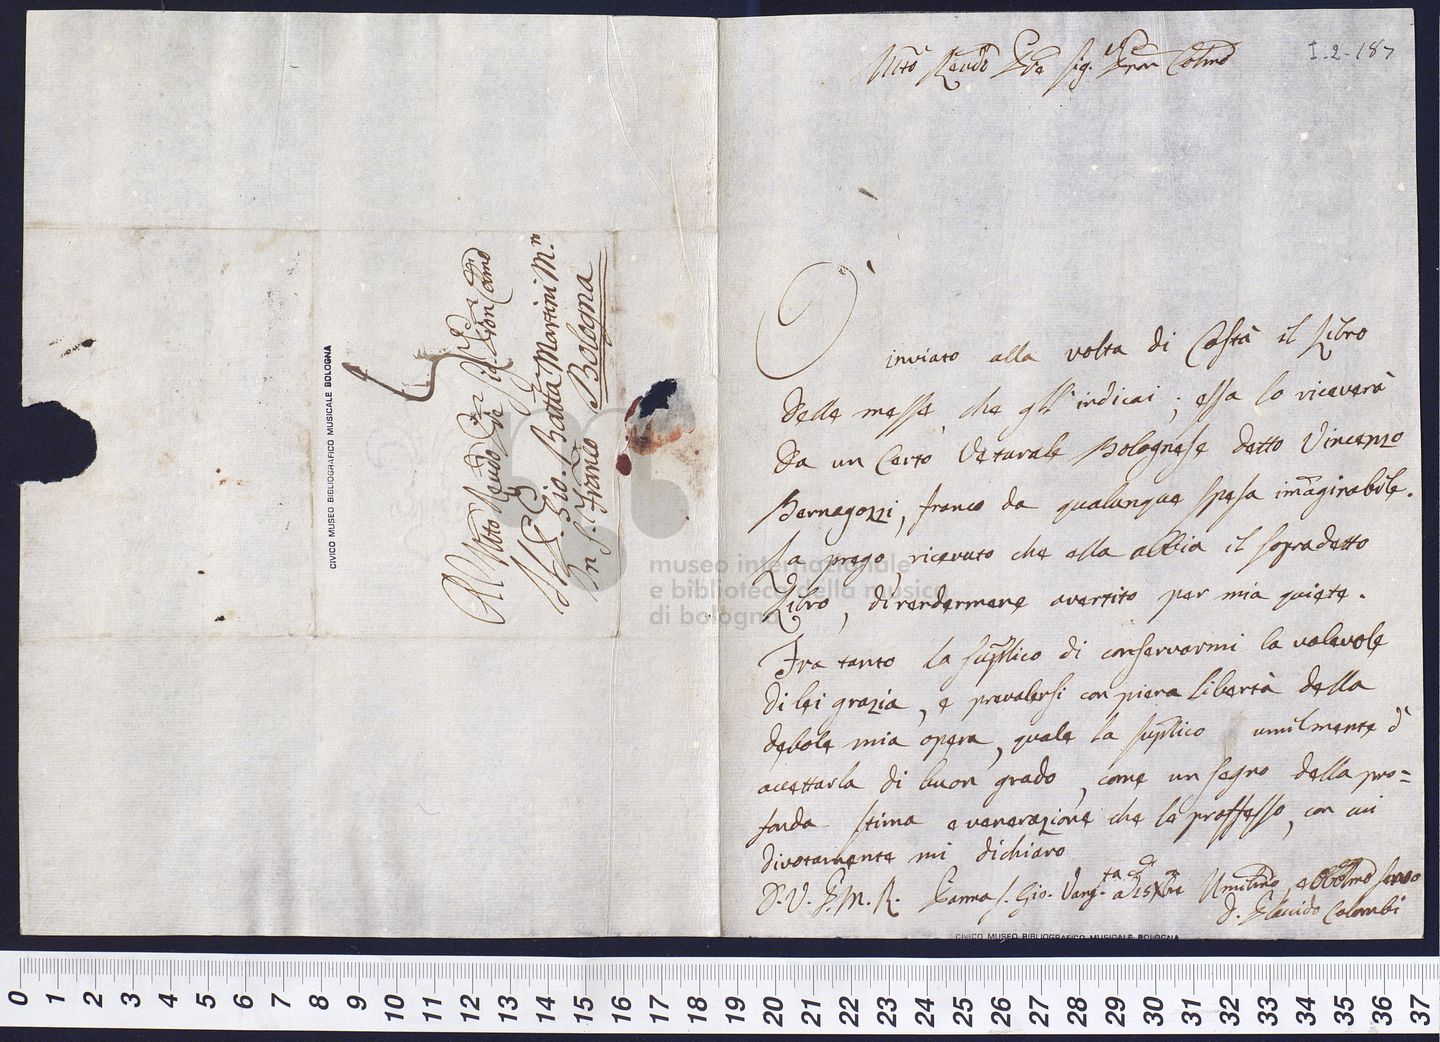 I.2.187
Molto Revdo Pre Sig. Pron Colmo
O' inviato alla volta di Costà il Libro
delle messe, che gl'indicai; essa lo riceverà
da un certo Veturale Bolognese detto Vincenzo
Bernagozzi, franco da qualunque spesa imaginabile.
La prego, ricevuto che ella abbia il sopradetto
Libro, di rendermene avertito per mia quiete.
Fra tanto la suplico di conservarmi la valevole
di lei grazia, e prevalersi con piena libertà della
debole mia opera, quale la suplico umilmente d'
accettarla di buon grado, come un segno della pro=
fonda stima e venerazione che le proffesso, con cui
divotamente mi dichiaro
D. V. P. M. R. Parma S. Gio. Vang.ta a di 15 Xbre Umilmo, e Obblmo servo
D. Placido Colombi
Al Molto Revdo Pre Sig. Pron Colmo
Il P. Gio. Batta Martini M.n
in S. Franco Bologna
CIVICO MUSEO BIBLIOGRAFICO MUSICALE BOLOGNA
museo internazionale
e biblioteca della musica
di bologna
CIVICO MUSEO BIBLIOGRAFICO MUSICALE BOLOGNA
0 1 2 3 4 5 6 7 8 9 10 11 12 13 14 15 16 17 18 19 20 21 22 23 24 25 26 27 28 29 30 31 32 33 34 35 36 37